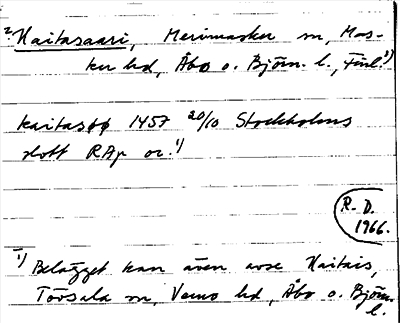 2 Kaitasaari, Merimasker sn, Mas-
ku hd, Åbo o. Björn. l., Finl.¹)
kaitasöö 1457 20/10 Stockholms
slott RAp or.¹)
R. D.
1966.
¹) Belägget kan även avse Kaitais,
Tövsala sn, Vemo hd, Åbo o. Björn.
l.